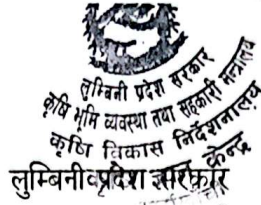 लुम्बिनी प्रदेश सरकार
कृषि भूमि व्यवस्था तथा सहकारी मन्त्रालय
कृषि विकास निर्देशनालय
केन्द्र
लुम्बिनी प्रदेश सरकार